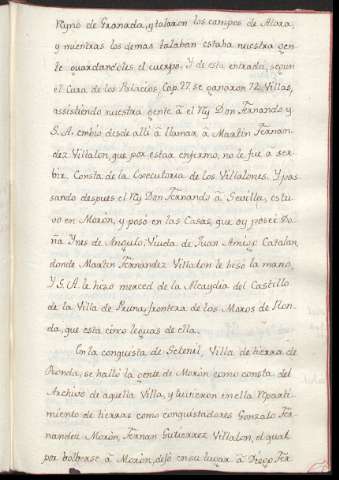 Ryno de Granada, y talaron los campos de Alora,
y mientras los demas talaban estaba nuestra gen-
te guardandoles el cuerpo. Y de esta entrada, segun
el Cura de los Palacios, Cap. 77 se ganaron 72 Villas,
assistiendo nuestra gente â el Ry Don Fernando y
S. A. embio desde alli â llamar â Martin Fernan-
dez Villalon, que por estar enfermo, no le fue â ser-
bir. Consta de la Executoria de los Villalones. Y pas-
sando despues el Ry Don Fernando â Sevilla, estu-
vo en Morón, y posó en las Casas, que oy posee Do-
ña Ynes de Angulo, Viuda de Juan Amigo Catalan,
donde Martin Fernandez Villalon le besó la mano,
Y S. A. le hizo merced de la Alcaydia del Castillo
de la Villa de Pruna, frontera de los Moros de Ron-
da, que está cinco leguas de ella.
En la conquista de Setenil, Villa de tierra de
Ronda, se halló la gente de Morón como consta del
Archivo de aquella Villa, y hicieron en ella Rparti-
miento de tierras como conquistadores Gonzalo Fer-
nandez Morón, Fernan Gutierrez Villalon, el qual
por bolberse â Morón, dejó en su lugar â Diego Fer-